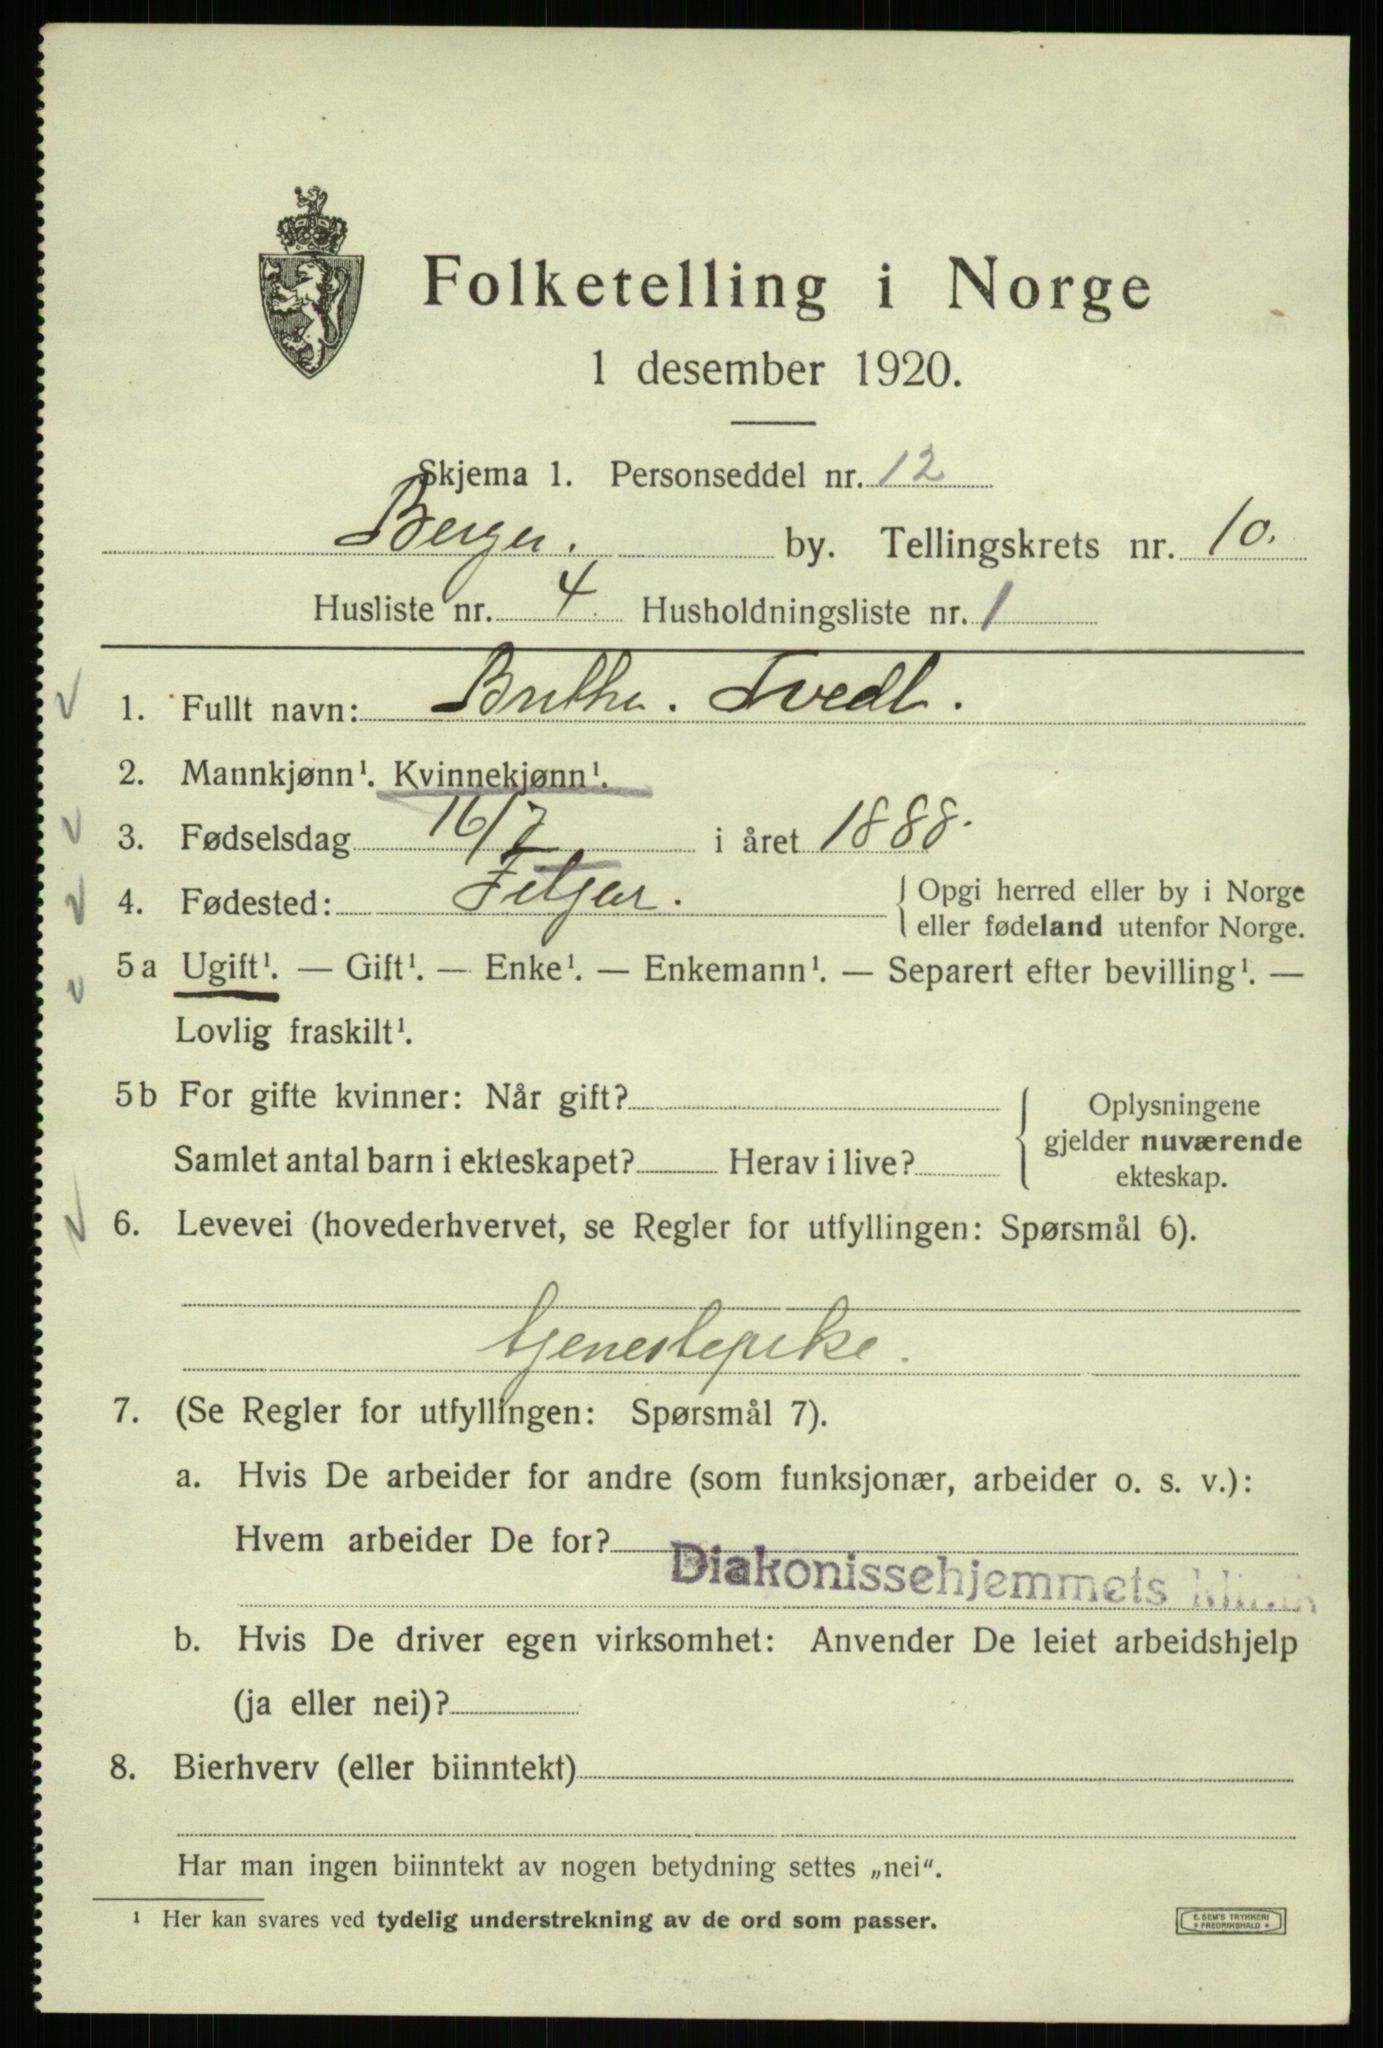 Folketelling i Norge
1 desember 1920.
Skjema 1. Personseddel nr. 12
Bergen. by. Tellingskrets nr. 10.
Husliste nr. 4 Husholdningsliste nr. 1
1. Fullt navn: Brithe. Tvedt.
2. Mannkjønn¹. Kvinnekjønn¹.
3. Fødselsdag 16/7 i året 1888.
4. Fødested: Fitjar. Opgi herred eller by i Norge
eller fødeland utenfor Norge.
5a Ugift¹. — Gift¹. — Enke¹. — Enkemann¹. — Separert efter bevilling¹. —
Lovlig fraskilt¹.
5b For gifte kvinner: Når gift?
Samlet antal barn i ekteskapet? Herav i live?
Oplysningene
gjelder nuværende
ekteskap.
6. Levevei (hovederhvervet, se Regler for utfyllingen: Spørsmål 6).
tjenestepike.
7. (Se Regler for utfyllingen: Spørsmål 7).
a. Hvis De arbeider for andre (som funksjonær, arbeider o. s. v.):
Hvem arbeider De for?
Diakonissehjemmets klinik
b. Hvis De driver egen virksomhet: Anvender De leiet arbeidshjelp
(ja eller nei)?
8. Bierhverv (eller biinntekt)
Har man ingen biinntekt av nogen betydning settes „nei“.
¹ Her kan svares ved tydelig understrekning av de ord som passer.
E. SEM'S TRYKKERI
* FREDRIKSHALD *